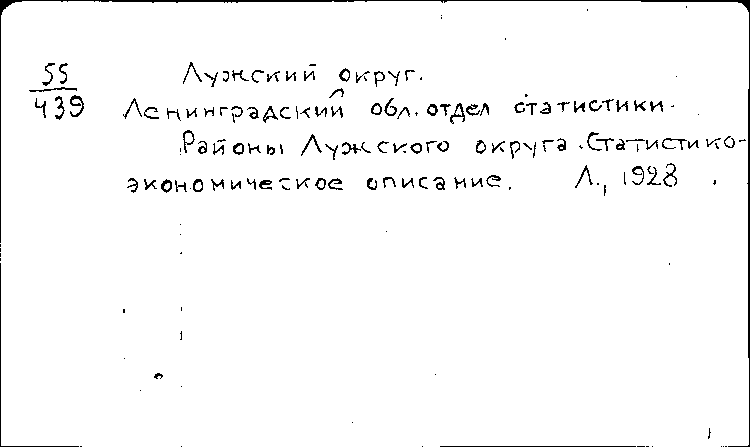 55
439
Лужский округ.
Ленинградский обл. отдел статистики.
Районы Лужского округа. Статистико-
экономическое описание. Л., 1928.